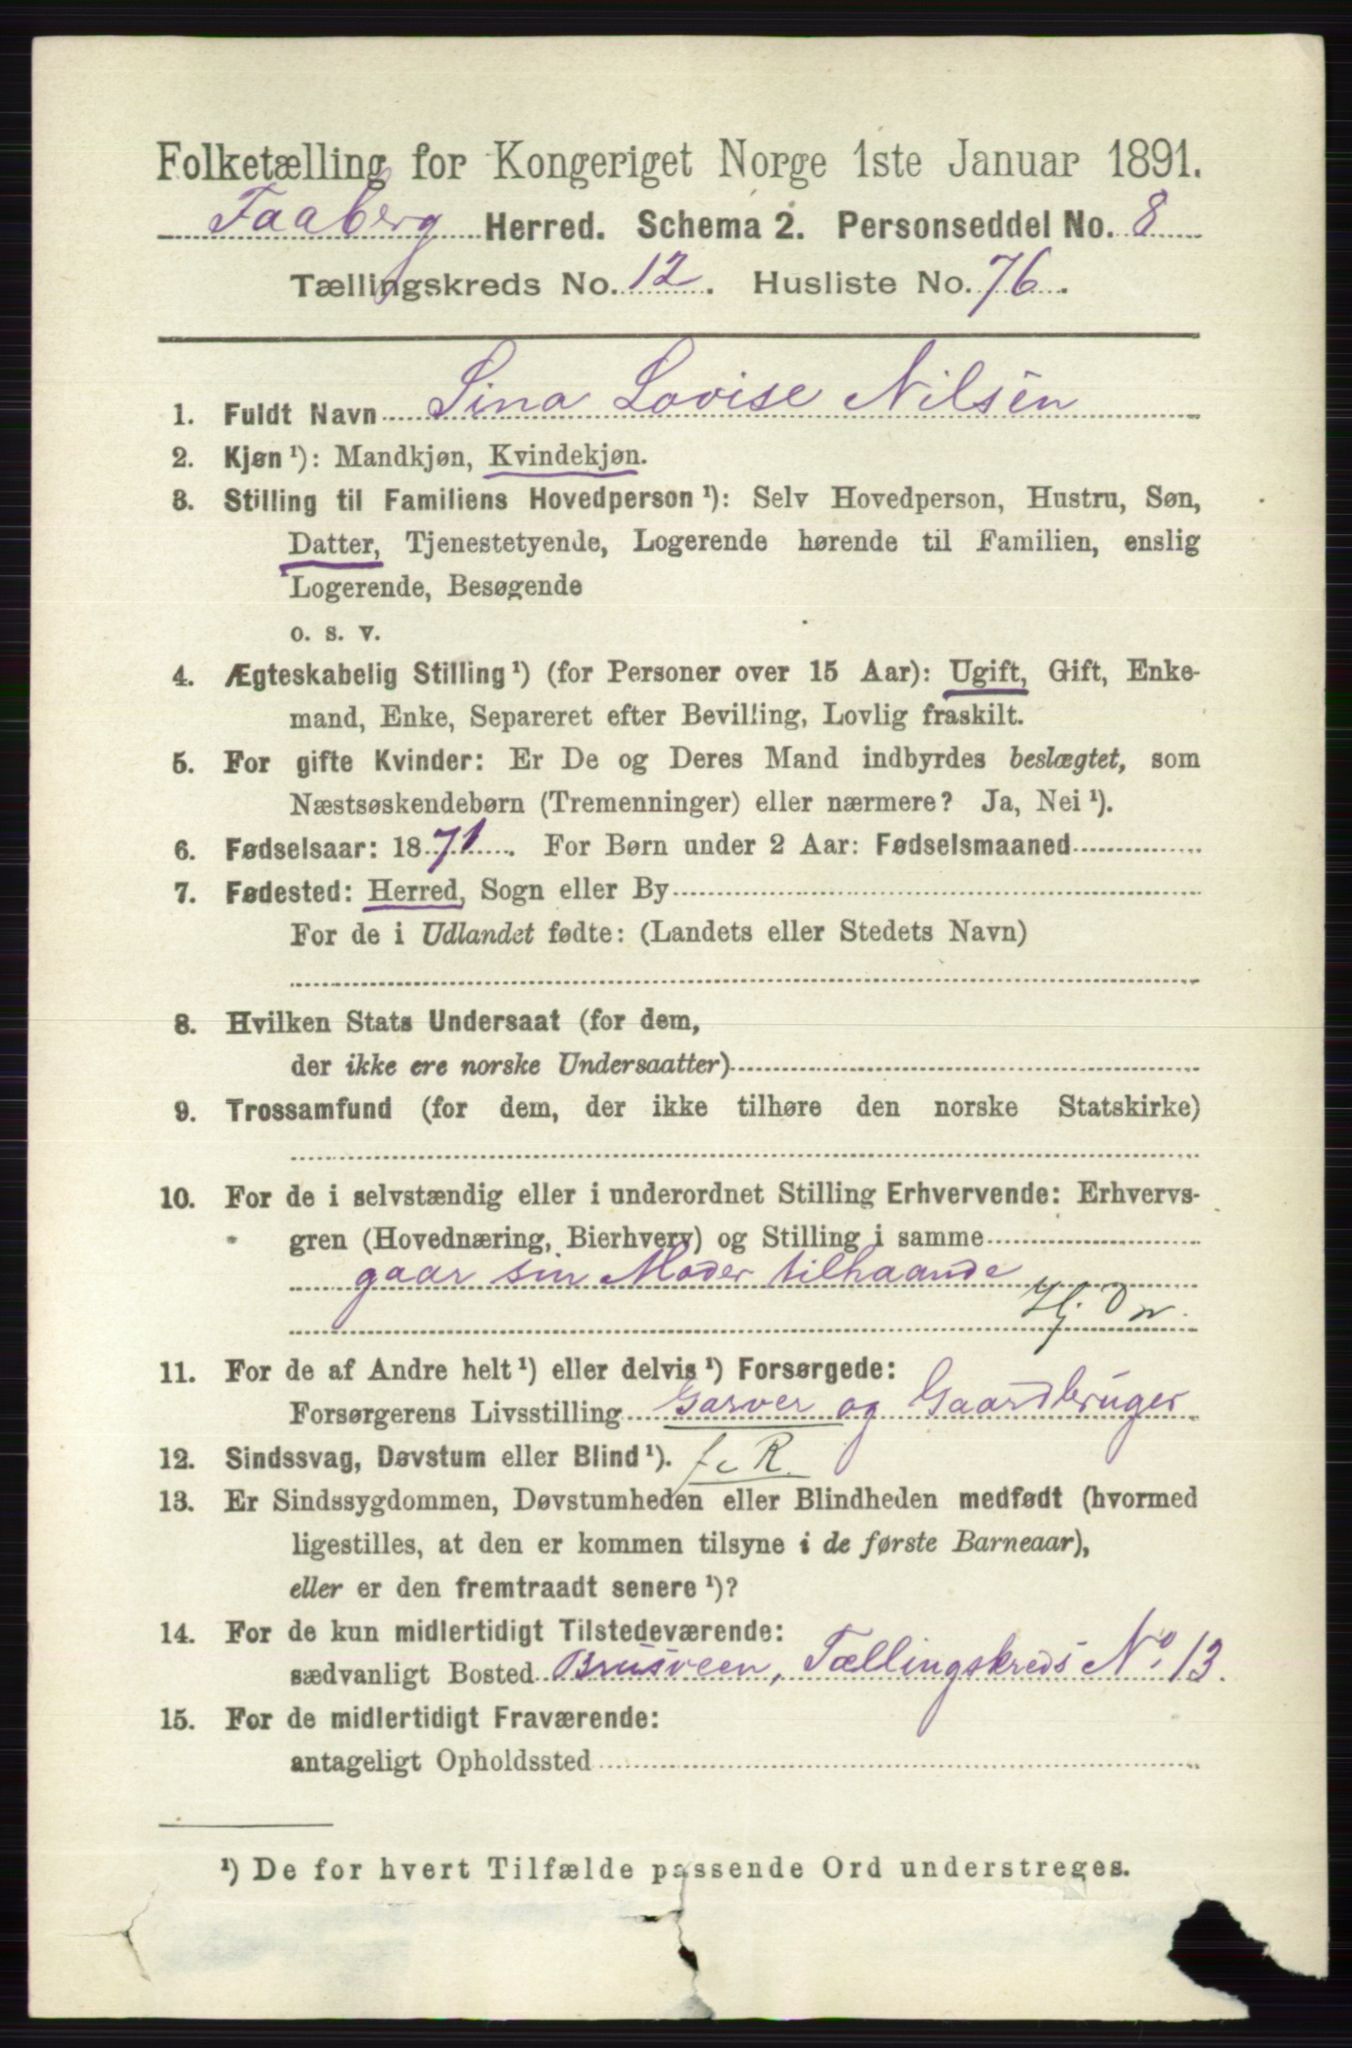 Folketælling for Kongeriget Norge 1ste Januar 1891.
Faaberg Herred. Schema 2. Personseddel No. 8
Tællingskreds No. 12. Husliste No. 76.
1. Fuldt Navn Lina Lovise Nilsen
2. Kjøn ¹): Mandkjøn, Kvindekjøn.
3. Stilling til Familiens Hovedperson ¹): Selv Hovedperson, Hustru, Søn,
Datter, Tjenestetyende, Logerende hørende til Familien, enslig
Logerende, Besøgende
o. s. v.
4. Ægteskabelig Stilling ¹) (for Personer over 15 Aar): Ugift, Gift, Enke-
mand, Enke, Separeret efter Bevilling, Lovlig fraskilt.
5. For gifte Kvinder: Er De og Deres Mand indbyrdes beslægtet, som
Næstsøskendebørn (Tremenninger) eller nærmere? Ja, Nei ¹).
6. Fødselsaar: 1871. For Børn under 2 Aar: Fødselsmaaned
7. Fødested: Herred, Sogn eller By
For de i Udlandet fødte: (Landets eller Stedets Navn)
8. Hvilken Stats Undersaat (for dem,
der ikke ere norske Undersaatter)
9. Trossamfund (for dem, der ikke tilhøre den norske Statskirke)
10. For de i selvstændig eller i underordnet Stilling Erhvervende: Erhvervs-
gren (Hovednæring, Bierhverv) og Stilling i samme
gaar sin Moder tilhaande
11. For de af Andre helt ¹) eller delvis ¹) Forsørgede:
Forsørgerens Livsstilling Garver og Gaardbruger
12. Sindssvag, Døvstum eller Blind ¹).
13. Er Sindssygdommen, Døvstumheden eller Blindheden medfødt (hvormed
ligestilles, at den er kommen tilsyne i de første Barneaar),
eller er den fremtraadt senere ¹)?
14. For de kun midlertidigt Tilstedeværende:
sædvanligt Bosted Brusveen, Tællingskreds No 13.
15. For de midlertidigt Fraværende:
antageligt Opholdssted
¹) De for hvert Tilfælde passende Ord understreges.